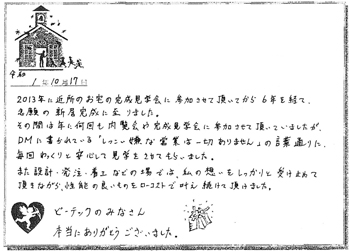 令和
1年10月17日
2013年に近所のお宅の完成見学会に参加させて頂いてから6年を経て、
念願の新居完成に至りました。
その間は年に何回も内覧会や完成見学会に参加させて頂いていましたが、
DMに書られている"しつこい嫌な営業は一切ありません"の言葉通りに、
毎回わくりと安心して見学をさせてもらいました。
また設計・発注・着工などの場では、私の想いをしっかりと受け止めて
頂きながら、性能の良いものをローコストで叶え続けて頂けました。
ビーテックのみなさん
本当にありがとうございました。